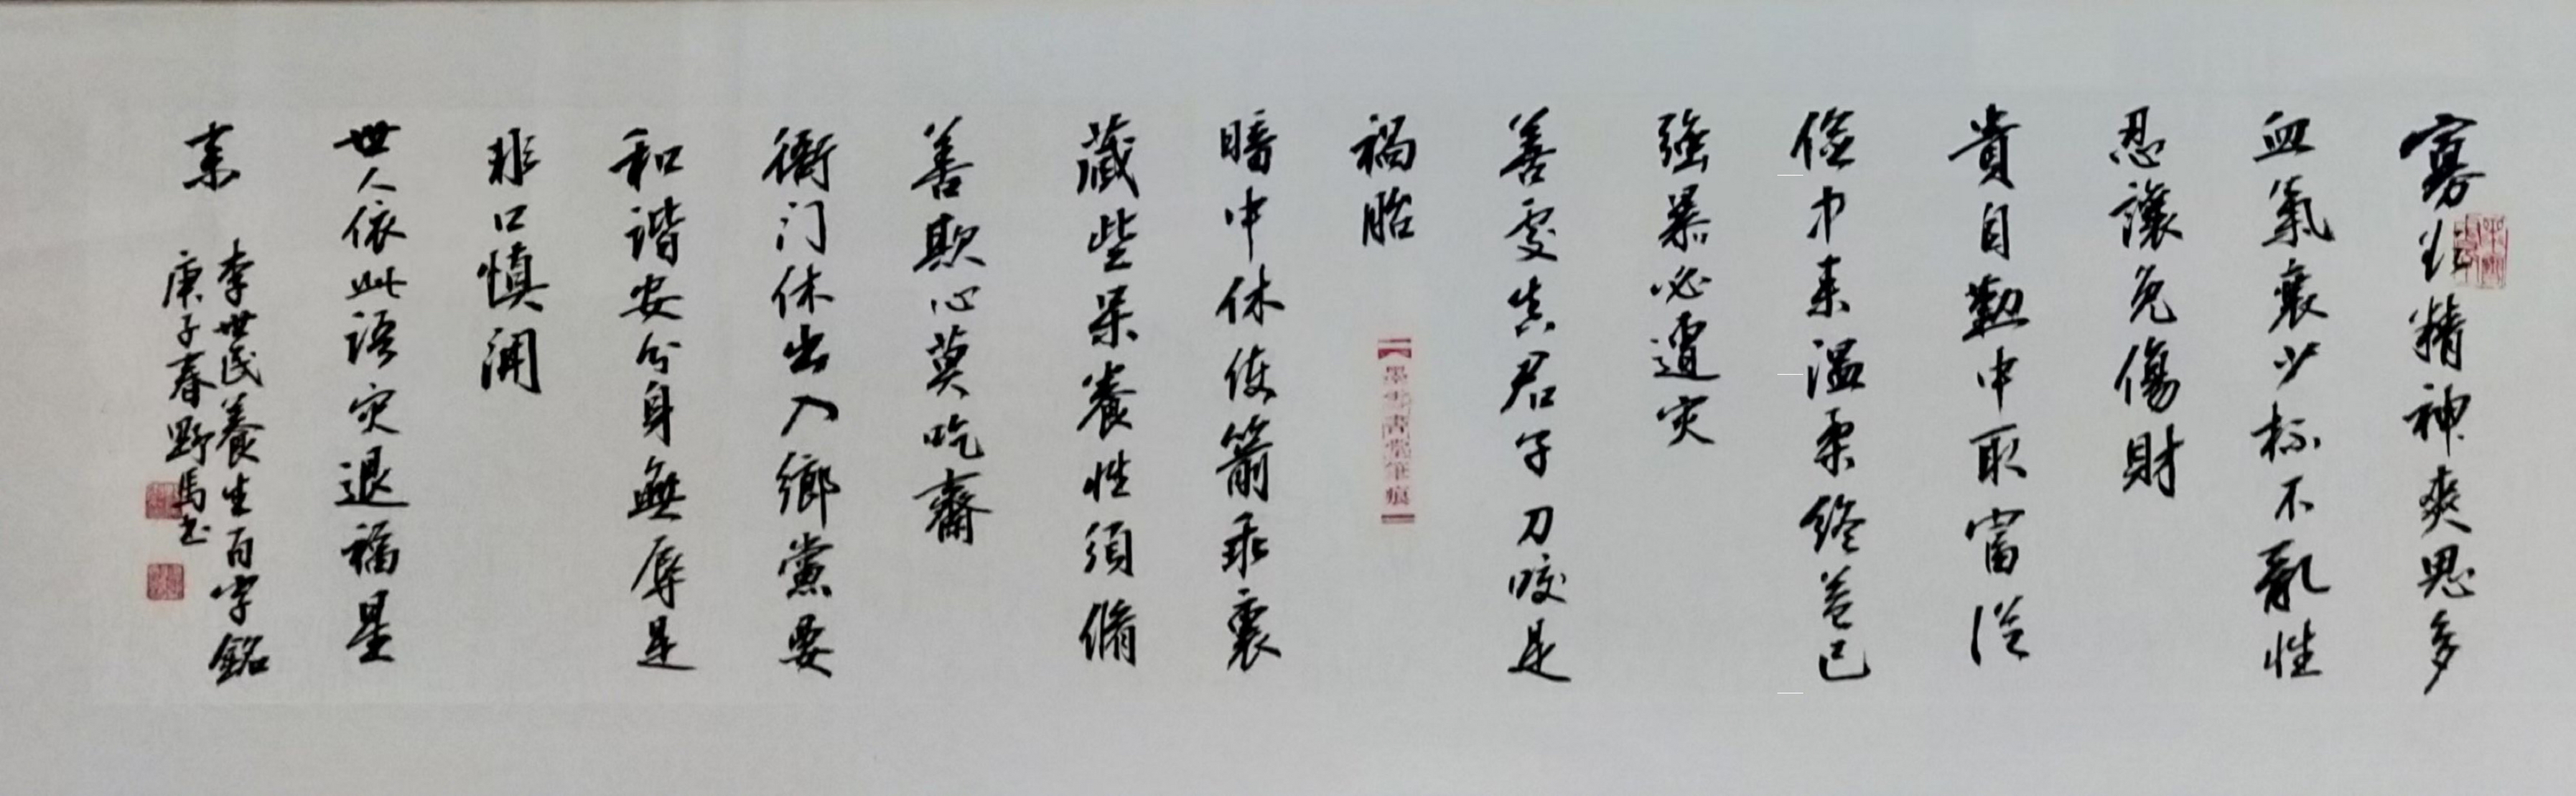 寡欲精神爽思多
血氣衰少杯不亂性
忍讓免傷財
貴自勤中取富從
儉中来温柔終益己
強暴必遭灾
善處真君子刀唆是
禍胎
暗中休使箭乖裏
藏些呆養性須脩
善欺心莫吃齋
衙门休出入鄉黨要
和谐安分身無辱是
非口慎開
世人依此语灾退福星
来
李世民養生百字銘
庚子春野馬书
墨雲書堂筆痕